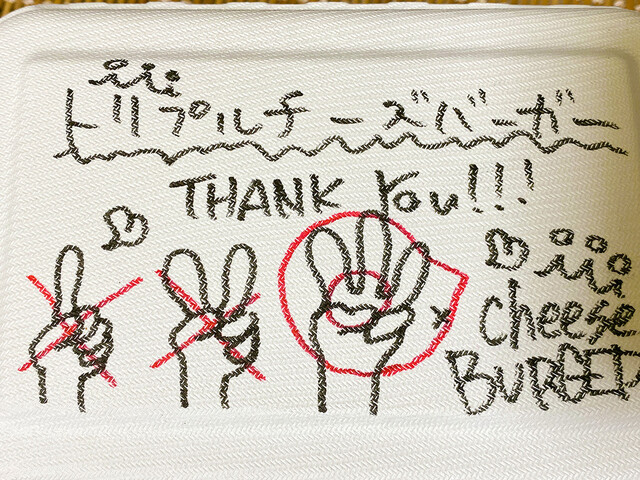 iii
トリプルチーズバーガー
THANK You!!!
iii
cheese
BURGER